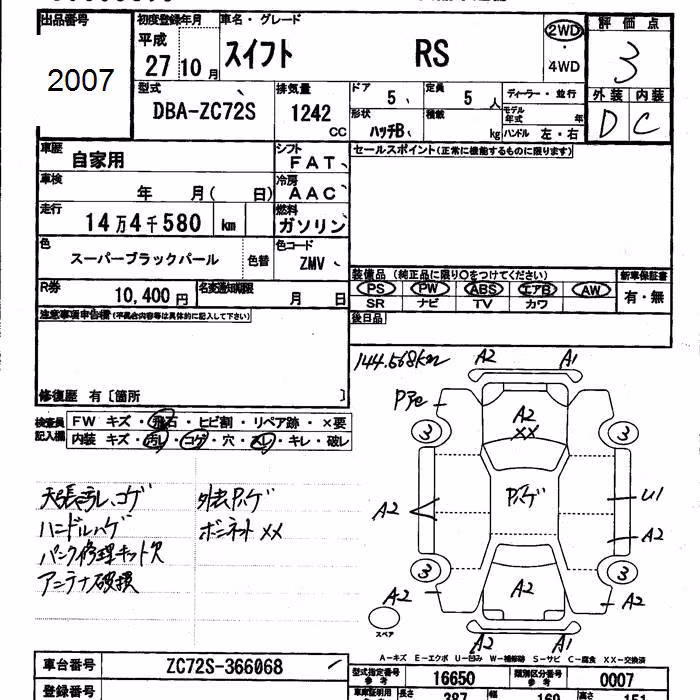 出品番号
2007
初度登録年月
平成
27 10月
車名・グレード
スイフト RS
2WD
・
4WD
評価点
3
外装 内装
D C
型式
DBA-ZC72S
排気量
1242
CC
ドア
5
定員
5 人
ディーラー・並行
形状
ハッチB
積載
kg
モデル年式 年
ハンドル 左・右
車歴
自家用
シフト
FAT
セールスポイント(正常に機能するものに限ります)
車検
年 月( 日)
冷房
AAC
走行
14万4千580 km
燃料
ガソリン
色
スーパーブラックパール
色替
色コード
ZMV
R券
10,400円
名変通知期限
月 日
装備品 (純正品に限り〇をつけてください)
新車保証書
PS PW ABS エアB AW
有・無
SR ナビ TV カワ
後日品
注意事項申告欄(不具合内容等は具体的に記入して下さい)
修復歴 有〔箇所 〕
144.568km
検査員
記入欄
FW キズ・飛石・ヒビ割・リペア跡・×要
内装 キズ・汚レ・コゲ・穴・スレ・キレ・破レ
天張汚レ、コゲ
ハンドルハゲ
パンク修理キット欠
アンテナ破損
外表Pハゲ
ボンネットXX
A2 A1
A2
XX
3 3
Pハゲ
A2
U1
A2
3 3
A2
A2
A2
A2 A1
スペア
A-キズ E-エクボ U-凹み W-補修跡 S-サビ C-腐食 XX-交換済
車台番号
ZC72S-366068
登録番号
型式指定番号
参考
16650
類別区分番号
参考
0007
車庫証明用
長さ
387
幅
169
高さ
151